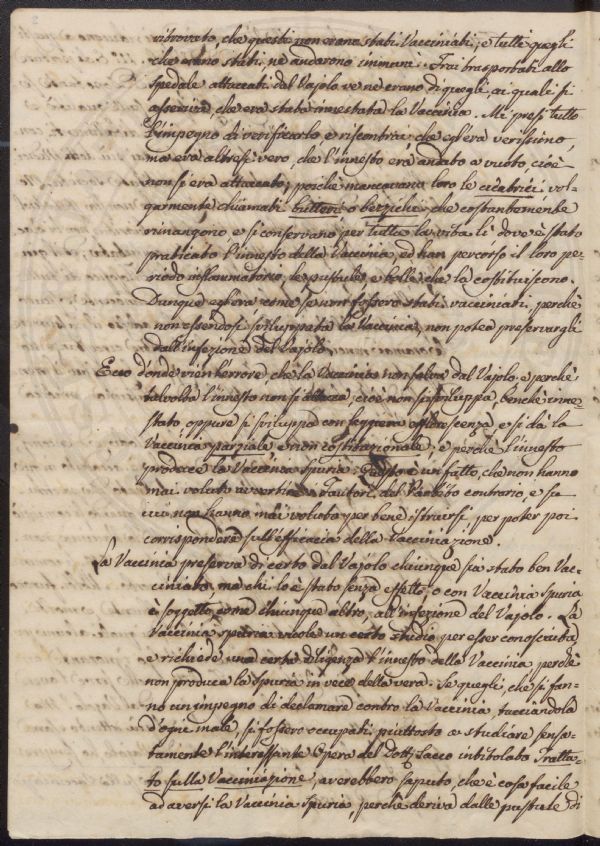 ritrovato, che questi non erano stati Vacciniati, e tutti quegli
che erano stati, ne andarono immuni. Frai trasportati allo
Spedale attaccati dal Vajolo ve ne erano di quegli, ai quali si
asseriva, che era stata innestata la Vaccinia. Mi presi tutto
l'impegno di verificarlo e riscontrai che egl'era verissimo,
ma era altresì vero, che l'innesto era andato a vuoto, cioè
non si era attaccato, poichè mancavano loro le cicatrici vol-
garmente chiamati butteri o bezzichi che costantemente
rimangono e si conservano per tutta la vita lì dove è stato
praticato l'innesto della Vaccinia, ed han percorso il loro pe-
riodo inflammatorio, le pustule, e bolle che la costituiscono.
Dunque egl'era come se non fossero stati vacciniati, perchè
non essendosi sviluppata la Vaccinia, non potea preservargli
dall'infezione del Vajolo.
Ecco donde vien l'errore, che la Vaccinia non salva dal Vajolo, e perchè
talvolta l'innesto non si attacca, cioè non si sviluppa, benchè inne-
stato, oppure si sviluppa con leggera efflorescenza, e si dà la
Vaccinia parziale e non costituzionale, e perchè l'innesto
produce la Vaccinia Spuria. Questo è un fatto, che non hanno
mai voluto avvertire i Fautori del Partito contrario, e su
cui non hanno mai voluto per bene istruirsi per poter poi
corrispondere sull'efficacia della Vaccinazione.
La Vaccinia preserva di certo dal Vajolo chiunque sia stato ben Vac-
ciniato, ma chi lo è stato senza effetto, o con Vaccinia Spuria
è soggetto, come chiunque altro, all'infezione del Vajolo. La
Vaccinia spuria vuole un certo studio per esser conosciuta
e richiede una certa diligenza l'innesto della Vaccinia perchè
non produca la Spuria in vece della vera. Se quegli, che si fan-
no un impegno di declamare contro la Vaccinia, tacciandola
d'ogni male, si fossero occupati piuttosto a studiare sensa-
tamente l'interessante Opera del Dott. Sacco intitolata Tratta-
to sulla Vaccinazione, averebbero saputo, che è cosa facile
ad aversi la Vaccinia Spuria, perchè deriva dalle pustule di